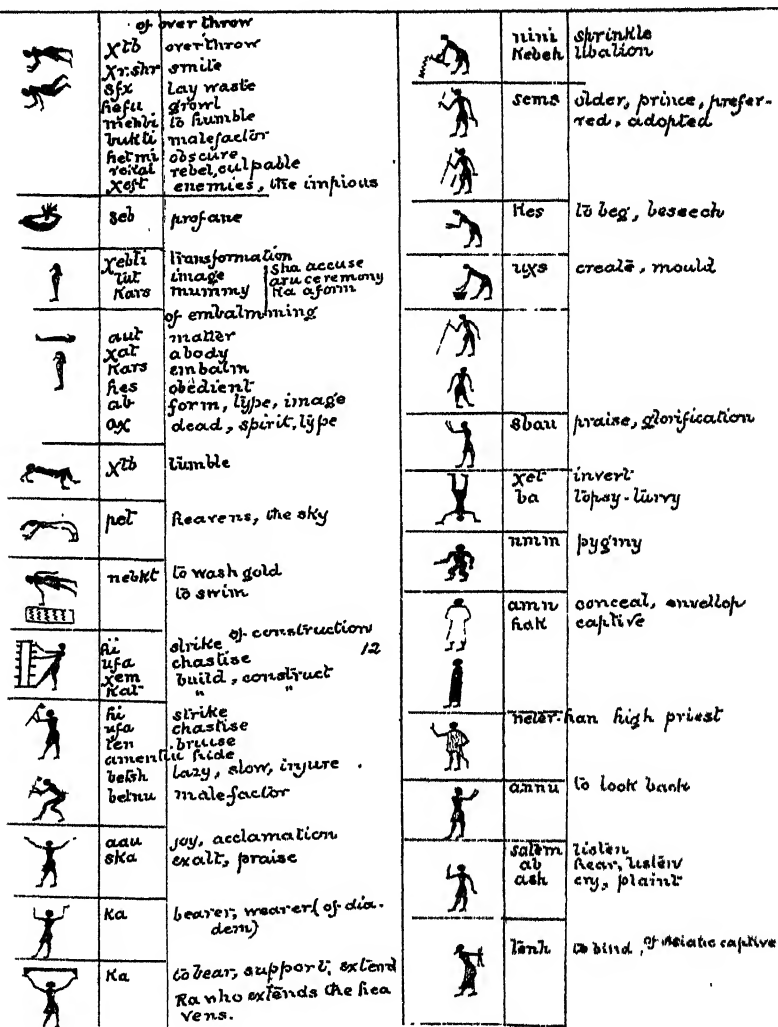 of over throw
xtb overthrow
xr.shr smile
sfx lay waste
hefu growl
mehbi to humble
bukti malefactor
hetmi obscure
rekal rebel, culpable
xeft enemies, the impious
seb profane
xebti transformation
tut image Sha accuse
Kars mummy aru ceremony
Ka a form
of embalmming
aut matter
xat a body
Kars embalm
hes obedient
ab form, type, image
ax dead, spirit, type
xtb tumble
pet heavens, the sky
nebkt to wash gold
to swim
of construction
hi strike 12
ufa chastise
xem build, construct
Kat " "
hi strike
ufa chastise
ten bruise
amentiu hide
betsh lazy, slow, injure
betnu malefactor
aau joy, acclamation
ska exalt, praise
Ka bearer, wearer (of dia-
dem)
Ka to bear, support, extend
Ra who extends the hea
vens.
nini sprinkle
Kebeh libation
sems older, prince, prefer-
red, adopted
Kes to beg, beseech
uxs create, mould
sbau praise, glorification
xet invert
ba topsy-turvy
nmm pygmy
amn conceal, envellop
hak captive
neter-han high priest
annu to look back
satem listen
ab hear, listen
ash cry, plaint
tenh to bind, of Asiatic captive